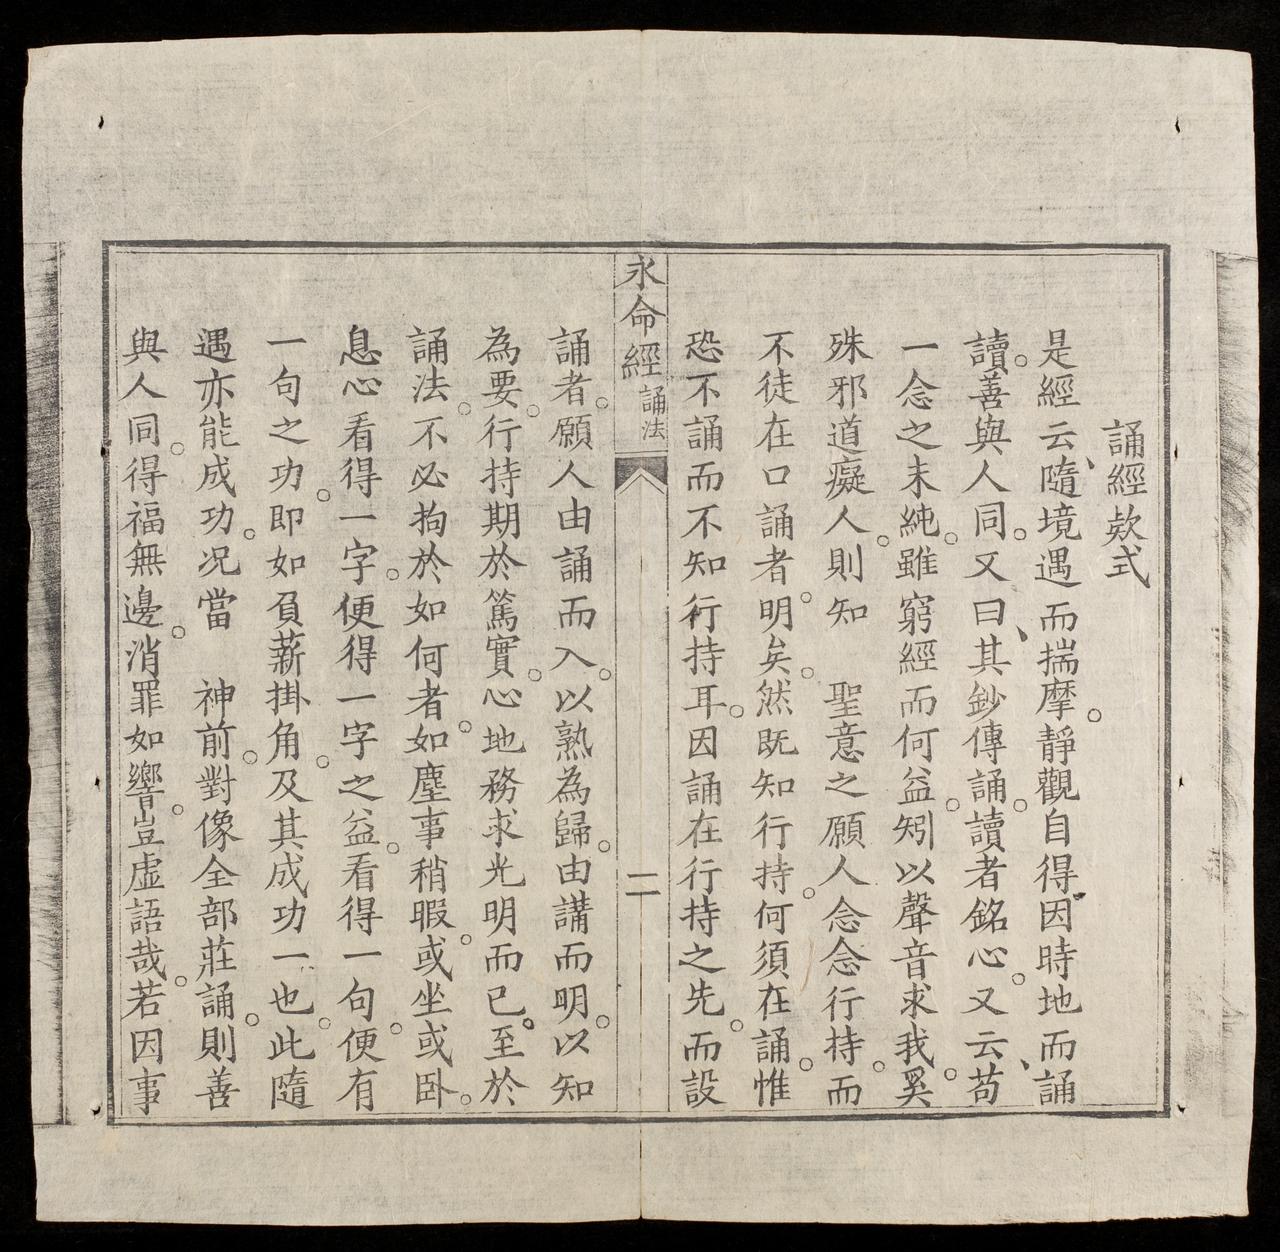 誦經欵式
是經云、隨境遇而揣摩。靜觀自得因時地而誦
讀。善與人同。又曰、其鈔傳誦。讀者銘心。又云、苟
一念之未純。雖窮經而何益。矧以聲音求我。奚
殊邪道癡人。則知　聖意之願人念念行持。而
不徒在口誦者。明矣。然既知行持。何須在誦。惟
恐不誦而不知行持耳。因誦在行持之先。而設
永命經 誦法
二
誦者。願人由誦而入。以熟為歸。由講而明。以知
為要。行持期於篤實。心地務求光明而已。至於
誦法。不必拘於如何者。如塵事稍暇。或坐或卧。
息心看得一字。便得一字之益。看得一句。便有
一句之功。即如負薪掛角。及其成功一也。此隨
遇亦能成功。况當　神前。對像全部莊誦。則善
與人同。得福無邊。消罪如響。豈虛語哉。若因事